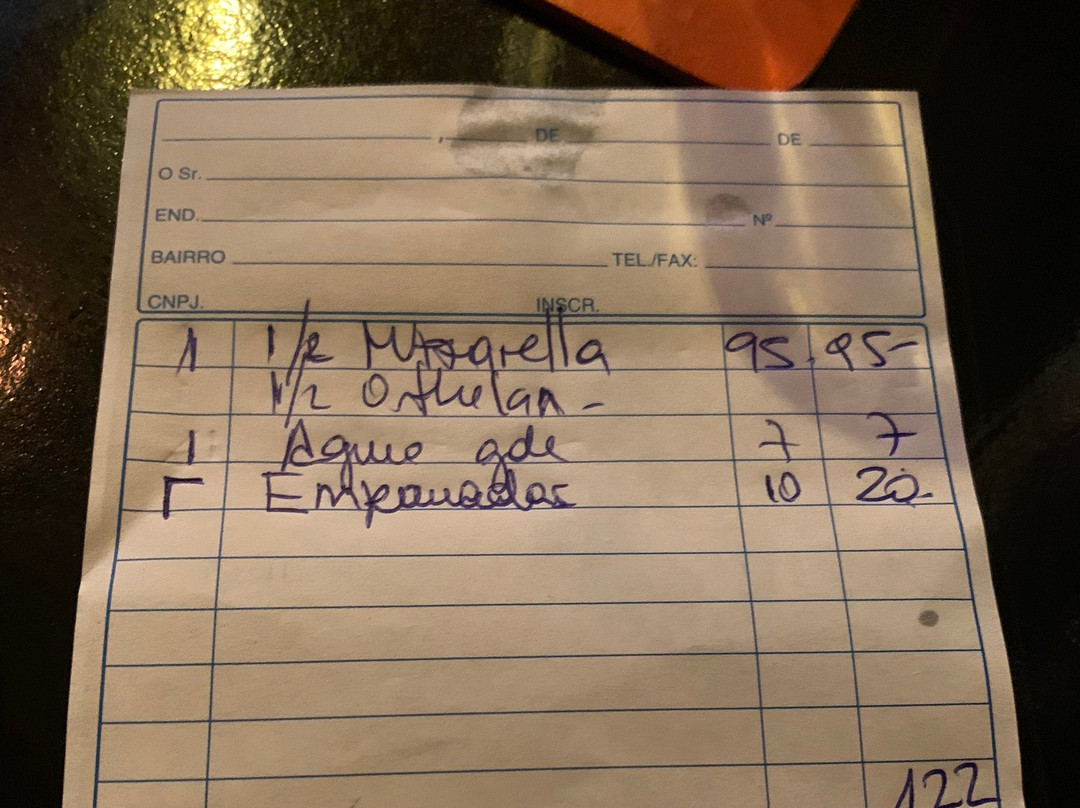 , DE DE
O Sr.
END. Nº
BAIRRO TEL./FAX:
CNPJ. INSCR.
1 1/2 95 95-
1/2
1 Agua gde 7 7
Empanadas 10 20-
122